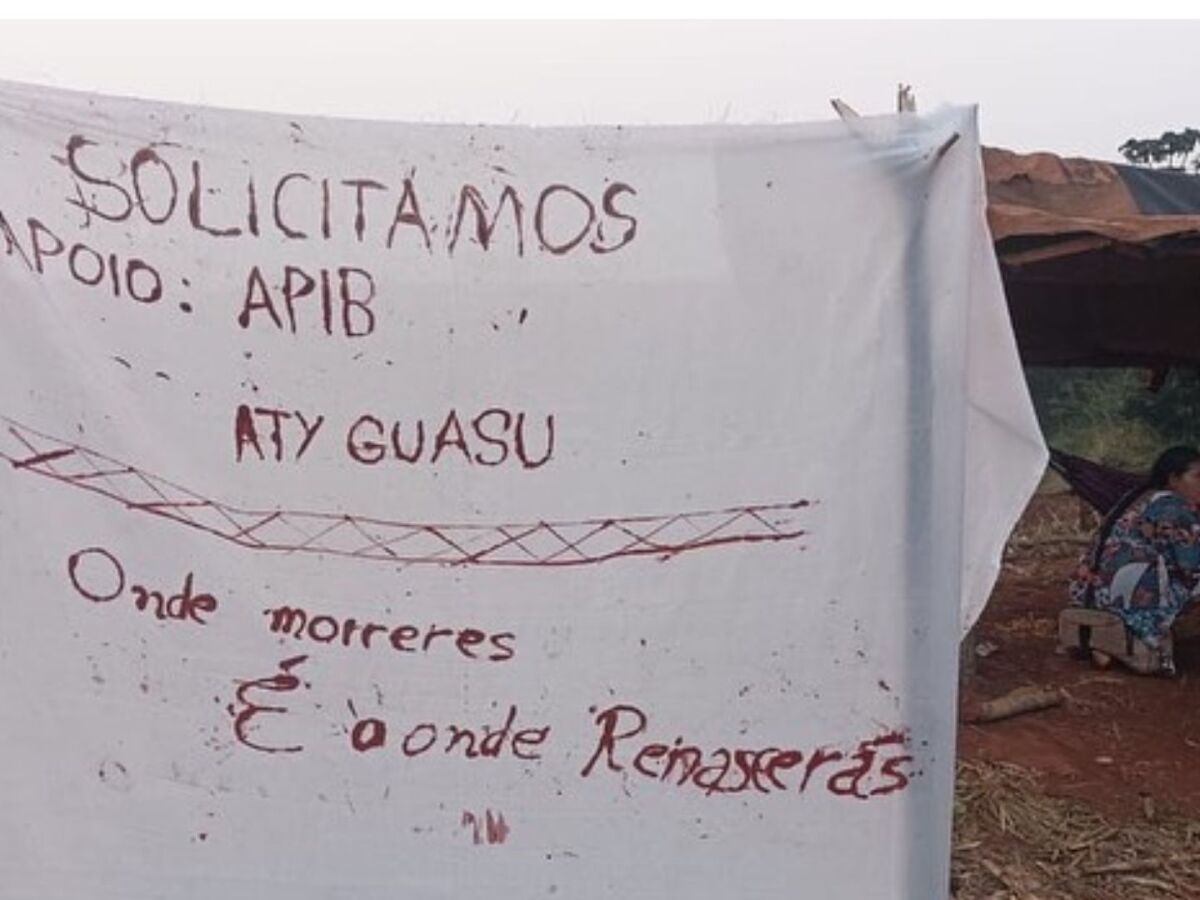 SOLICITAMOS
APOIO: APIB
ATY GUASU
Onde morreres
É aonde Reinascerás